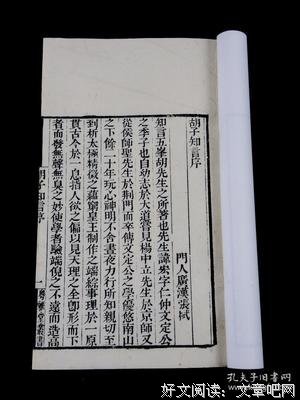 胡子知言序
門人廣漢張栻
知言五峯胡先生之所著也先生諱宏字仁仲文定公
之季子也自幼志於大道嘗見楊中立先生於京師又
從侯師聖先生於荊門而卒傳文定公之學優悠南山
之下餘二十年玩心神明不舍晝夜力行所知親切至
到析太極精微之蘊窮皇王制作之端綜事理於一原
貫古今於一息指人欲之偏以見天理之全即形而下
者而發無聲無臭之妙使學者驗端倪之不遠而造高
胡子知言序
一
粵雅堂叢書
孔夫子旧书网
好文阅读:文章吧网